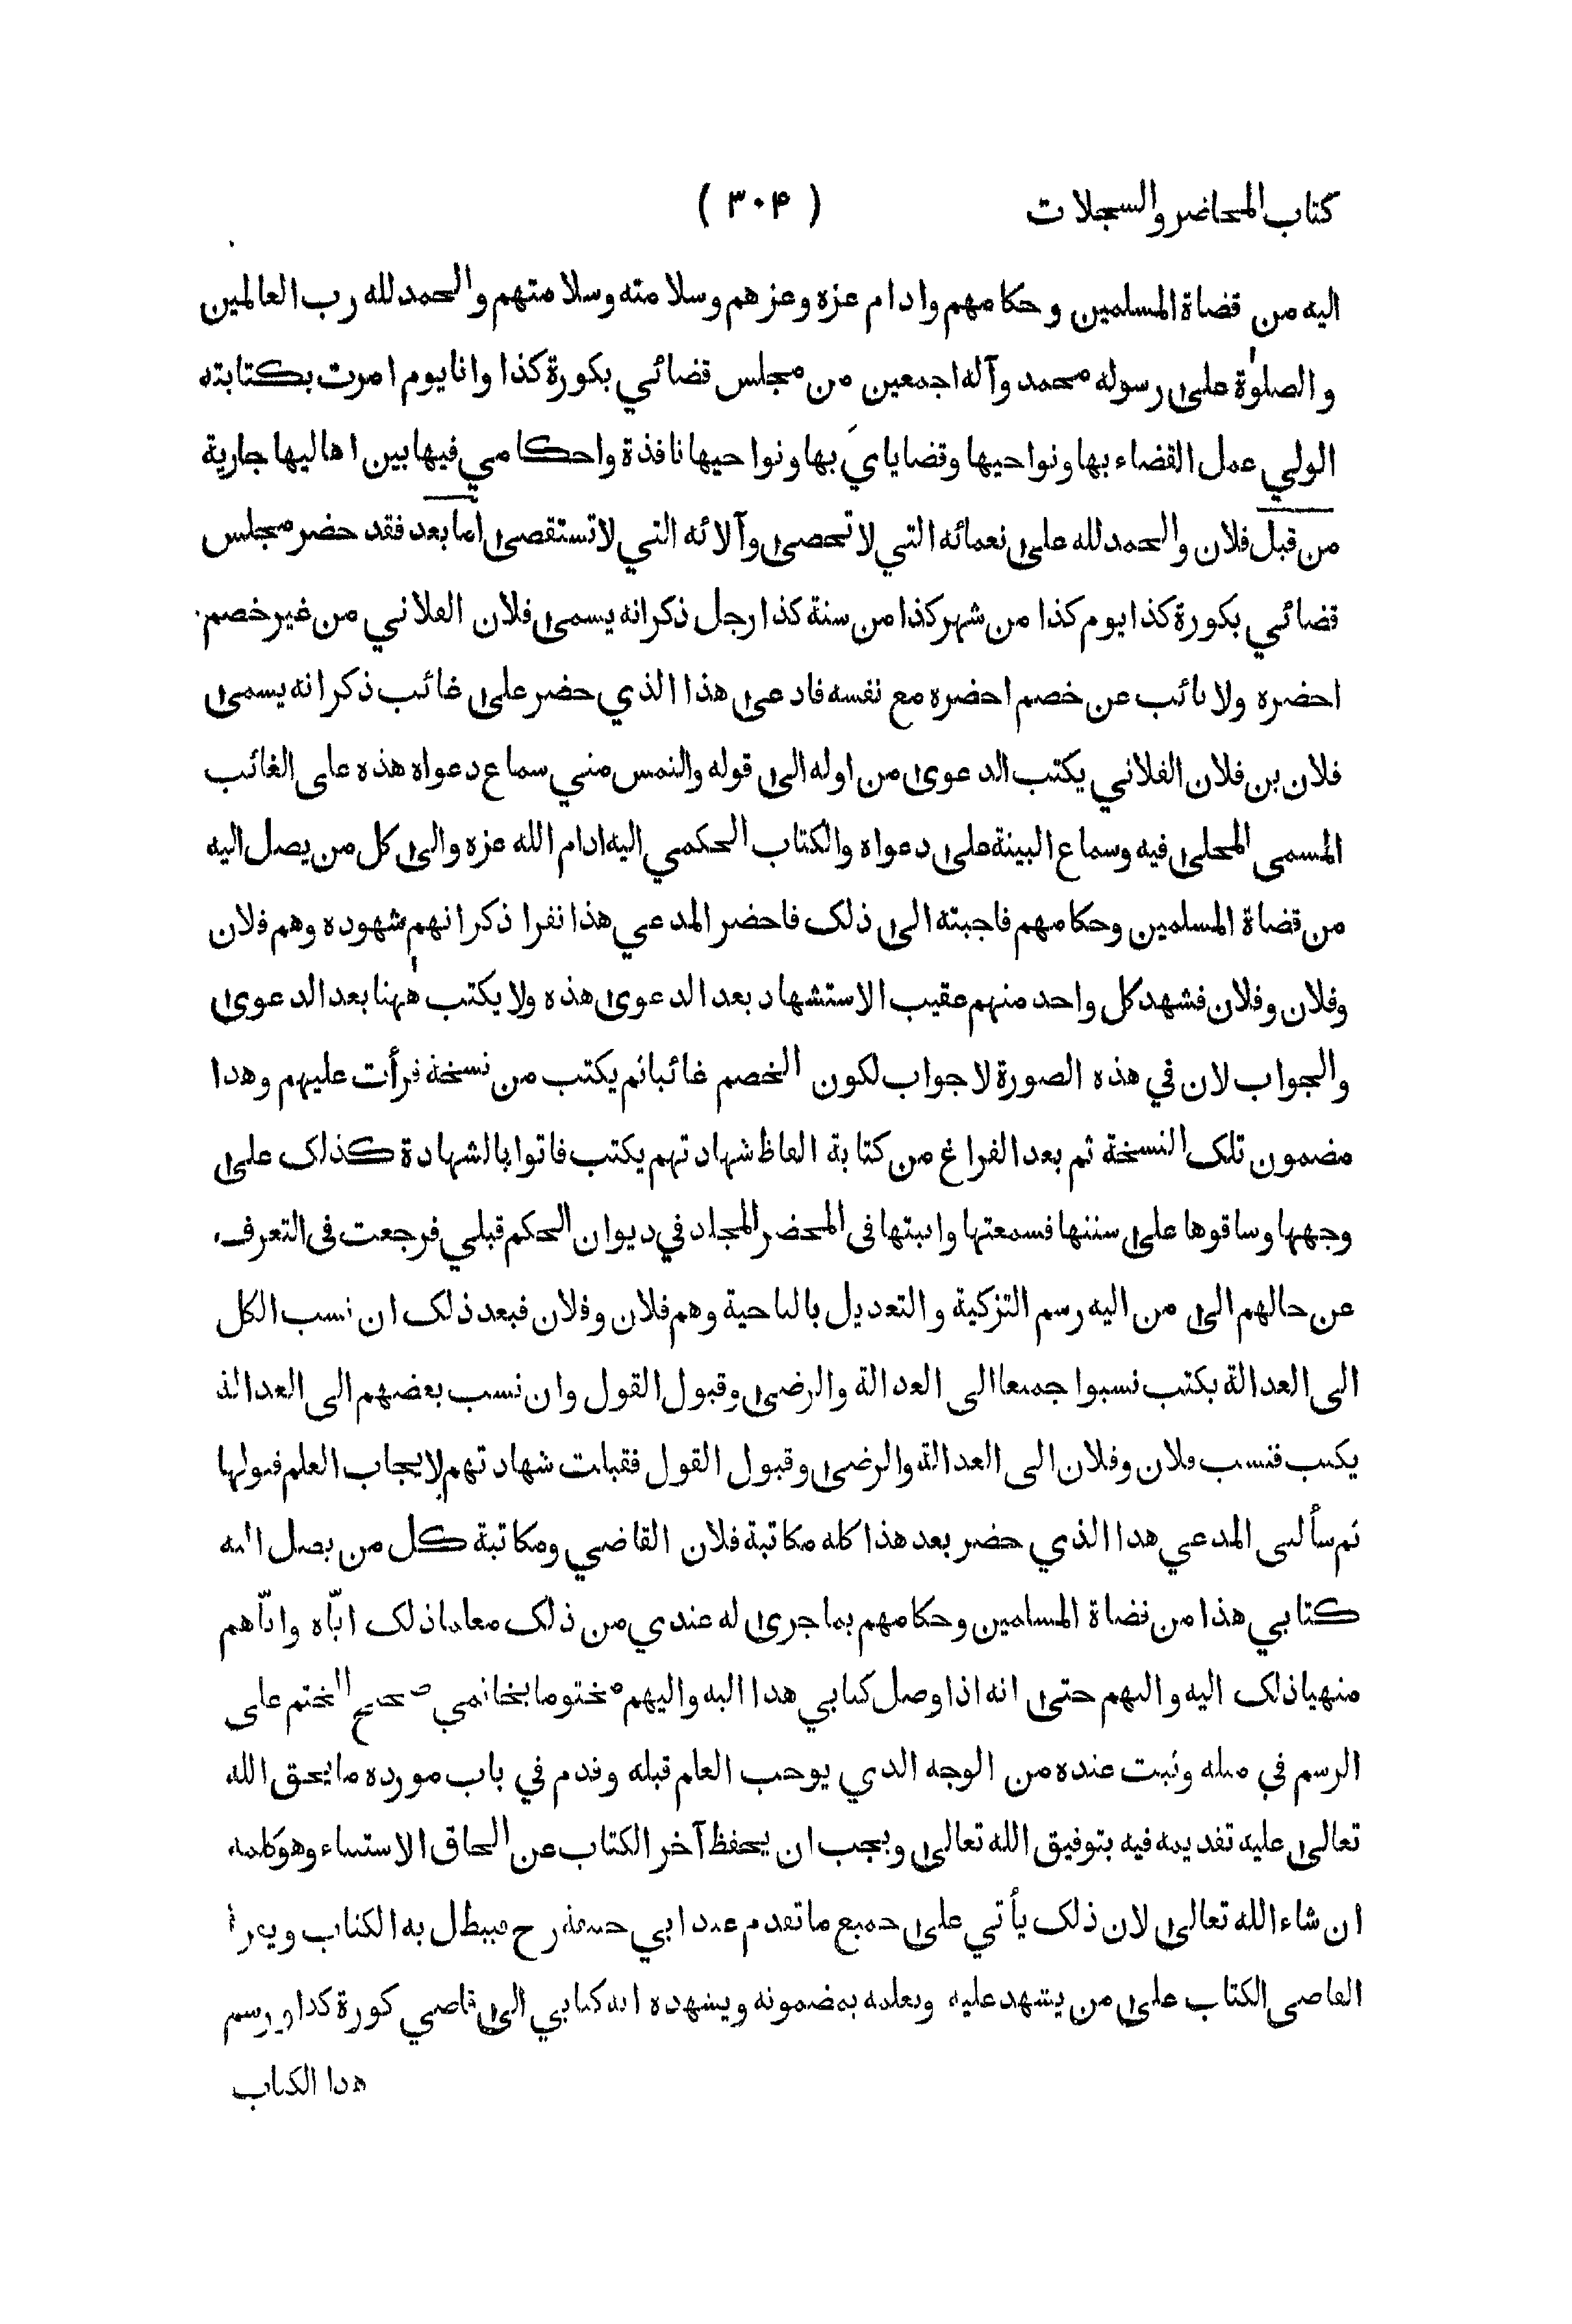 كتاب المحاضر والسجلات (٣٠۴)
اليه من قضاة المسلمين وحكامهم وادام عزه وعزهم وسلامته وسلامتهم والحمد لله رب العالمين
والصلوٰة على رسوله محمد وآله اجمعين من مجلس قضائي بكورة كذا وانا يوم امرت بكتابته
الولي عمل القضاء بها ونواحيها وقضاياي بها ونواحيها نافذة واحكامي فيها بين اهاليها جارية
من قبل فلان والحمد لله على نعمائه التي لا تحصى وآلائه التي لا تستقصى اما بعد فقد حضر مجلس
قضائي بكورة كذا يوم كذا من شهر كذا من سنة كذا رجل ذكر انه يسمى فلان الفلاني من غير خصم
احضره ولا نائب عن خصم احضره مع نفسه فادعى هذا الذي حضر على غائب ذكر انه يسمى
فلان بن فلان الفلاني يكتب الدعوى من اوله الى قوله والتمس مني سماع دعواه هذه على الغائب
المسمى المحلى فيه وسماع البينة على دعواه والكتاب الحكمي اليه ادام الله عزه والى كل من يصل اليه
من قضاة المسلمين وحكامهم فاجبته الى ذلك فاحضر المدعي هذا نفرا ذكر انهم شهوده وهم فلان
وفلان وفلان فشهد كل واحد منهم عقيب الاستشهاد بعد الدعوى هذه ولا يكتب هٰهنا بعد الدعوى
والجواب لان في هذه الصورة لا جواب لكون الخصم غائبا ثم يكتب من نسخة قرأت عليهم وهذا
مضمون تلك النسخة ثم بعد الفراغ من كتابة الفاظ شهادتهم يكتب فاتوا بالشهادة كذلك على
وجهها وساقوها على سننها فسمعتها واثبتها في المحضر المجلد في ديوان الحكم قبلي فرجعت في التعرف
عن حالهم الى من اليه رسم التزكية والتعديل بالناحية وهم فلان وفلان فبعد ذلك ان نسب الكل
الى العدالة يكتب نسبوا جميعا الى العدالة والرضى وقبول القول وان نسب بعضهم الى العدالة
يكتب فنسب فلان وفلان الى العدالة والرضى وقبول القول فقبلت شهادتهم لايجاب العلم قبولها
ثم سألني المدعي هذا الذي حضر بعد هذا كله مكاتبة فلان القاضي ومكاتبة كل من يصل اليه
كتابي هذا من قضاة المسلمين وحكامهم بما جرى له عندي من ذلك معلما ذلك ايّاه وايّاهم
منهيا ذلك اليه واليهم حتى انه اذا وصل كتابي هذا اليه واليهم مختوما بخاتمي صحيح الختم على
الرسم في مثله وثبت عنده من الوجه الذي يوجب العلم قبله وقدم في باب مورده ما يحق الله
تعالى عليه تقديمه فيه بتوفيق الله تعالى ويجب ان يحفظ آخر الكتاب عن الحاق الاستثناء وهو كلمة
ان شاء الله تعالى لان ذلك يأتي على جميع ما تقدم عند ابي حنيفة رح فيبطل به الكتاب ويقرأ
القاضي الكتاب على من يشهد عليه ويعلمه بمضمونه ويشهده انه كتابي الى قاضي كورة كذا ورسم
هذا الكتاب